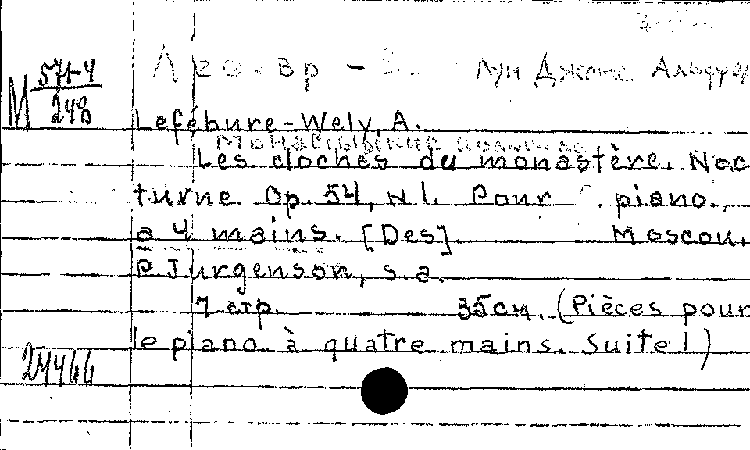 M 571-4
248
Луи Джемс Альфред
Lefébure-Wely, A.
Les cloches du monastère. Noc
turne. Op. 54, N 1. Pour piano
à 4 mains. [Des] Moscou,
P. Jurgenson, s.a.
7 стр. 35см. (Pièces pour
le piano à quatre mains. Suite 1)
27466